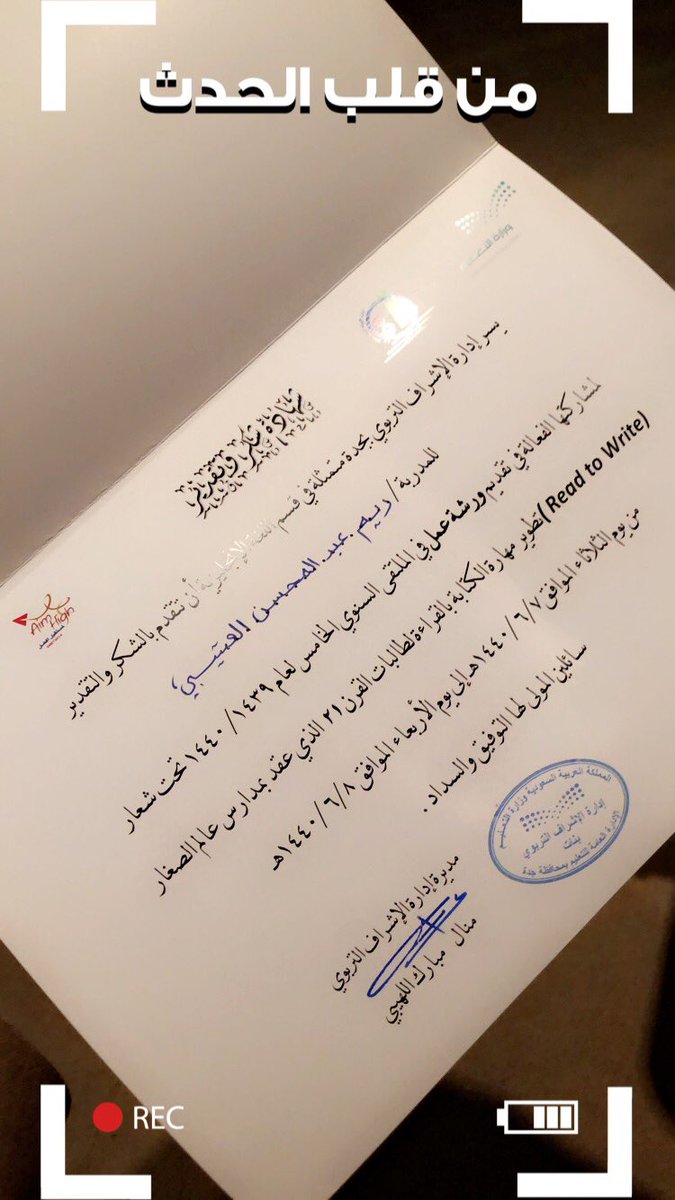 من قلب الحدث
وزارة التعليم
شهادة شكر وتقدير
يسر إدارة الإشراف التربوي بجدة متمثلة في قسم اللغة الإنجليزية أن تتقدم بالشكر والتقدير
للمدربة / ريم عبد المحسن العتيبي
لمشاركتها الفعالة في تقديم ورشة عمل في الملتقى السنوي الخامس لعام ١٤٣٩ / ١٤٤٠ تحت شعار
(Read to Write) تطوير مهارة الكتابة بالقراءة لطالبات القرن ٢١ الذي عقد بمدارس عالم الصغار
من يوم الثلاثاء الموافق ١٤٤٠/٦/٧هـ إلى يوم الأربعاء الموافق ١٤٤٠/٦/٨هـ
سائلين المولى لها التوفيق والسداد .
Aim High
مديرة إدارة الإشراف التربوي
منال مبارك اللهيبي
المملكة العربية السعودية وزارة التعليم
إدارة الإشراف التربوي
بنات
الإدارة العامة للتعليم بمحافظة جدة
REC